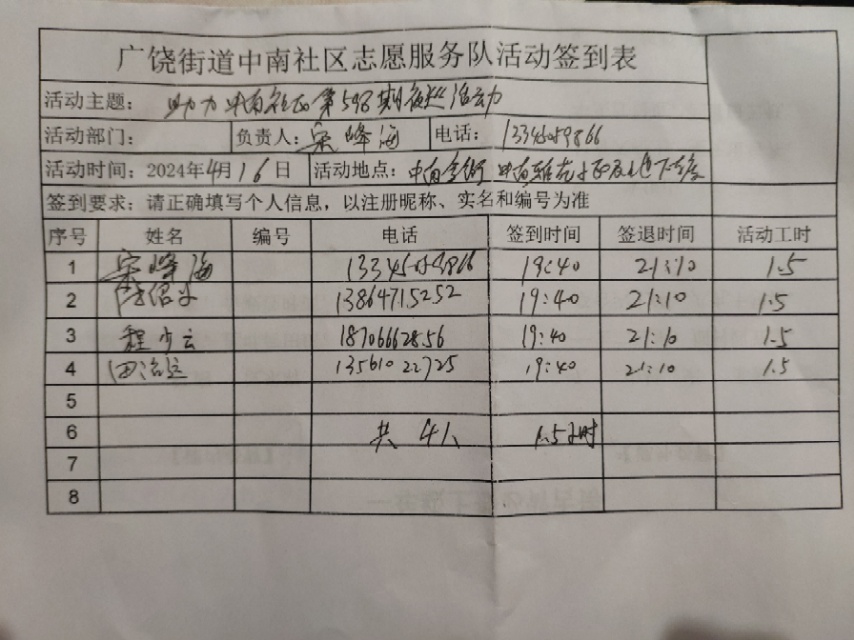 广饶街道中南社区志愿服务队活动签到表
活动主题： 助力中南社区第598期夜巡活动
活动部门： 负责人：宋峰海 电话：
活动时间：2024年4月16日 活动地点：中南
签到要求：请正确填写个人信息，以注册昵称、实名和编号为准
序号 姓名 编号 电话 签到时间 签退时间 活动工时
1 宋峰海 19:40 21:10 1.5
2 13864715252 19:40 21:10 1.5
3 程少云 18706662856 19:40 21:10 1.5
4 田治 13561022725 19:40 21:10 1.5
5
6 共4人 1.5小时
7
8